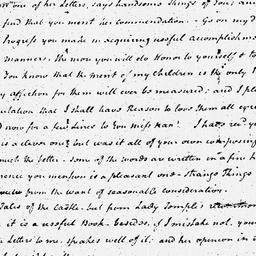 one of her Letters, says handsome things of you; and
find that you merit her commendation. - Go on my D
Progress you make in acquiring useful Accomplishm
manners. The more you will do Honor to yourself & to
You know that the merit of my Children is the only
my affection for them will ever be measured: and I pl
ulation that I shall have Reason to love them all equ
d now for a few Lines to you miss Nan! I have rec'd yo
is a clever one & but was it all of your own composing
much the better. some of the words are written in a fine h
rence you mention is a pleasant one - strange Things
from the want of seasonable consideration.
Tales of the Castle. but from Lady Temple's
it is a useful Book. besides, if I mistake not, your
Letters to me, speaks well of it; and her opinion in